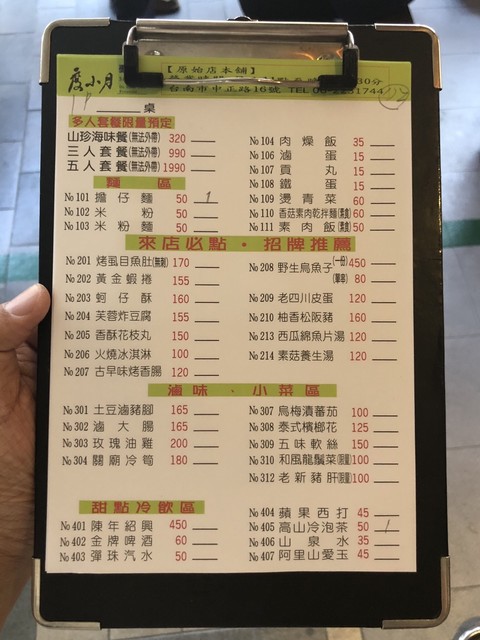 度小月
【原始店本舖】
30分
台南市中正路16號 TEL 06-2231744
桌
多人套餐限量預定
山珍海味餐(無法外帶) 320
三人套餐(無法外帶) 990
五人套餐(無法外帶) 1990
麵 區
№101 擔仔麵 50 1
№102 米粉 50
№103 米粉麵 50
№104 肉燥飯 35
№106 滷蛋 15
№107 貢丸 15
№108 鐵蛋 15
№109 燙青菜 60
№110 香菇素肉乾拌麵(素食) 60
№111 素肉飯(素食) 50
來店必點・招牌推薦
№201 烤虱目魚肚(無刺) 170
№202 黃金蝦捲 155
№203 蚵仔酥 160
№204 芙蓉炸豆腐 155
№205 香酥花枝丸 150
№206 火燒冰淇淋 100
№207 古早味烤香腸 120
№208 野生烏魚子 (一份) 450
(單客) 80
№209 老四川皮蛋 120
№210 柚香松阪豬 160
№213 西瓜綿魚片湯 120
№214 素菇養生湯 120
滷味・小菜區
№301 土豆滷豬腳 165
№302 滷大腸 165
№303 玫瑰油雞 200
№304 關廟冷筍 180
№307 烏梅漬蕃茄 100
№308 泰式檳榔花 125
№309 五味軟絲 150
№310 和風龍鬚菜(限量) 100
№312 老新豬肝(限量) 100
甜點冷飲區
№401 陳年紹興 450
№402 金牌啤酒 60
№403 彈珠汽水 50
№404 蘋果西打 45
№405 高山冷泡茶 50 1
№406 山泉水 35
№407 阿里山愛玉 45